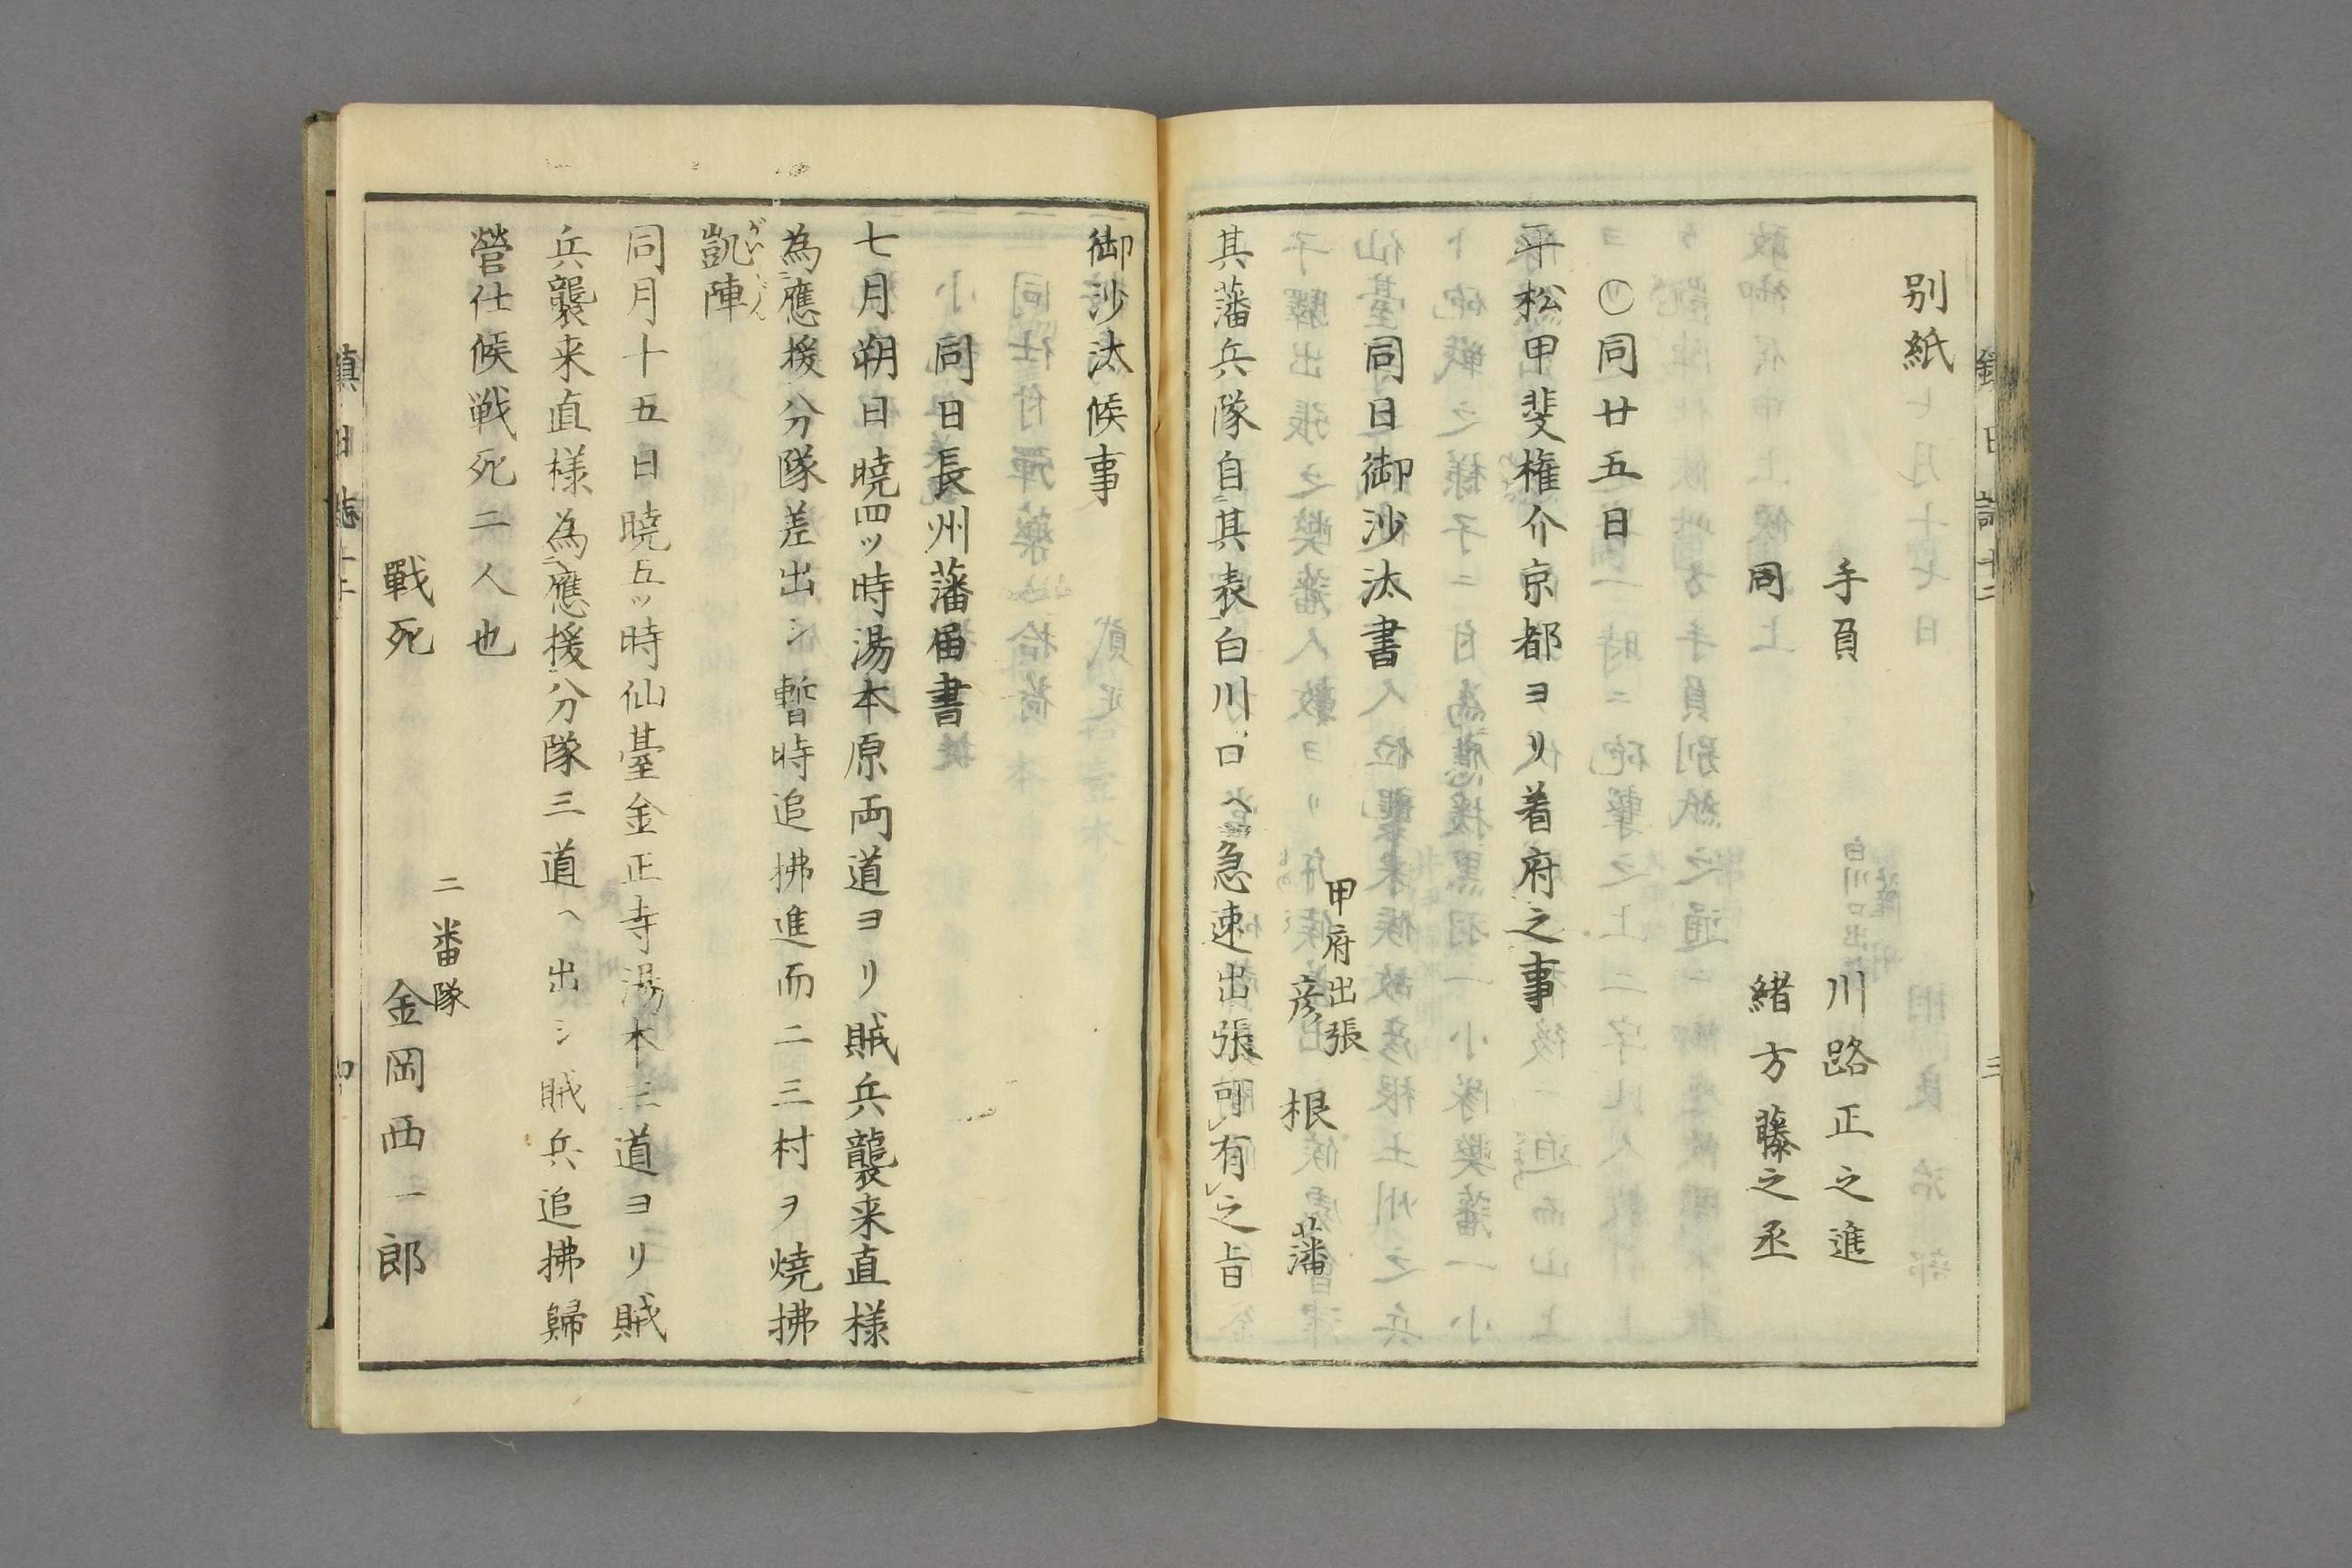 別紙
手負　川路正之進
同　緒方藤之丞
○同廿五日
平松甲斐権介京都ヨリ着府之事
同日御沙汰書
甲府出張
彦根藩
其藩兵隊自其表白川口ヘ急速出張可有之旨
御沙汰候事
同日長州藩届書
七月朔日暁四ツ時湯本原両道ヨリ賊兵襲来直様
為應援分隊差出シ暫時追拂進而二三村ヲ焼拂
凱陣
がいぢん
同月十五日暁五ツ時仙臺金正寺湯本三道ヨリ賊
兵襲来直様為應援分隊三道ヘ出シ賊兵追拂歸
營仕候戦死二人也
二番隊
戰死　金岡西一郎